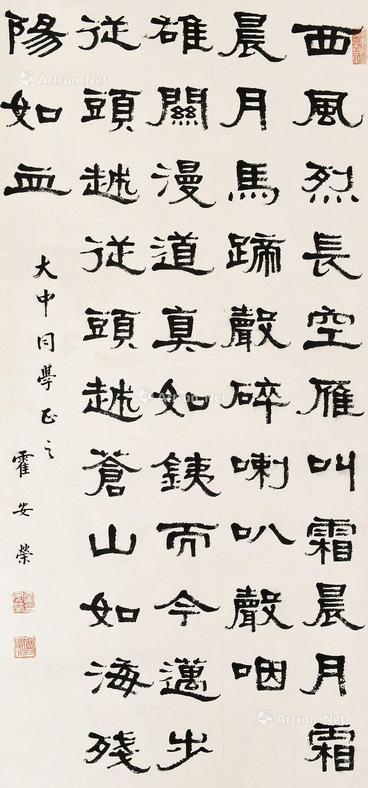 西風烈長空雁叫霜晨月霜
晨月馬蹄聲碎喇叭聲咽
雄關漫道真如銕而今邁步
從頭越從頭越蒼山如海殘
陽如血
大中同學正之
霍安榮
Artron.Net
Artron.Net
Artron.Net
Artron.Net
Artron.Net